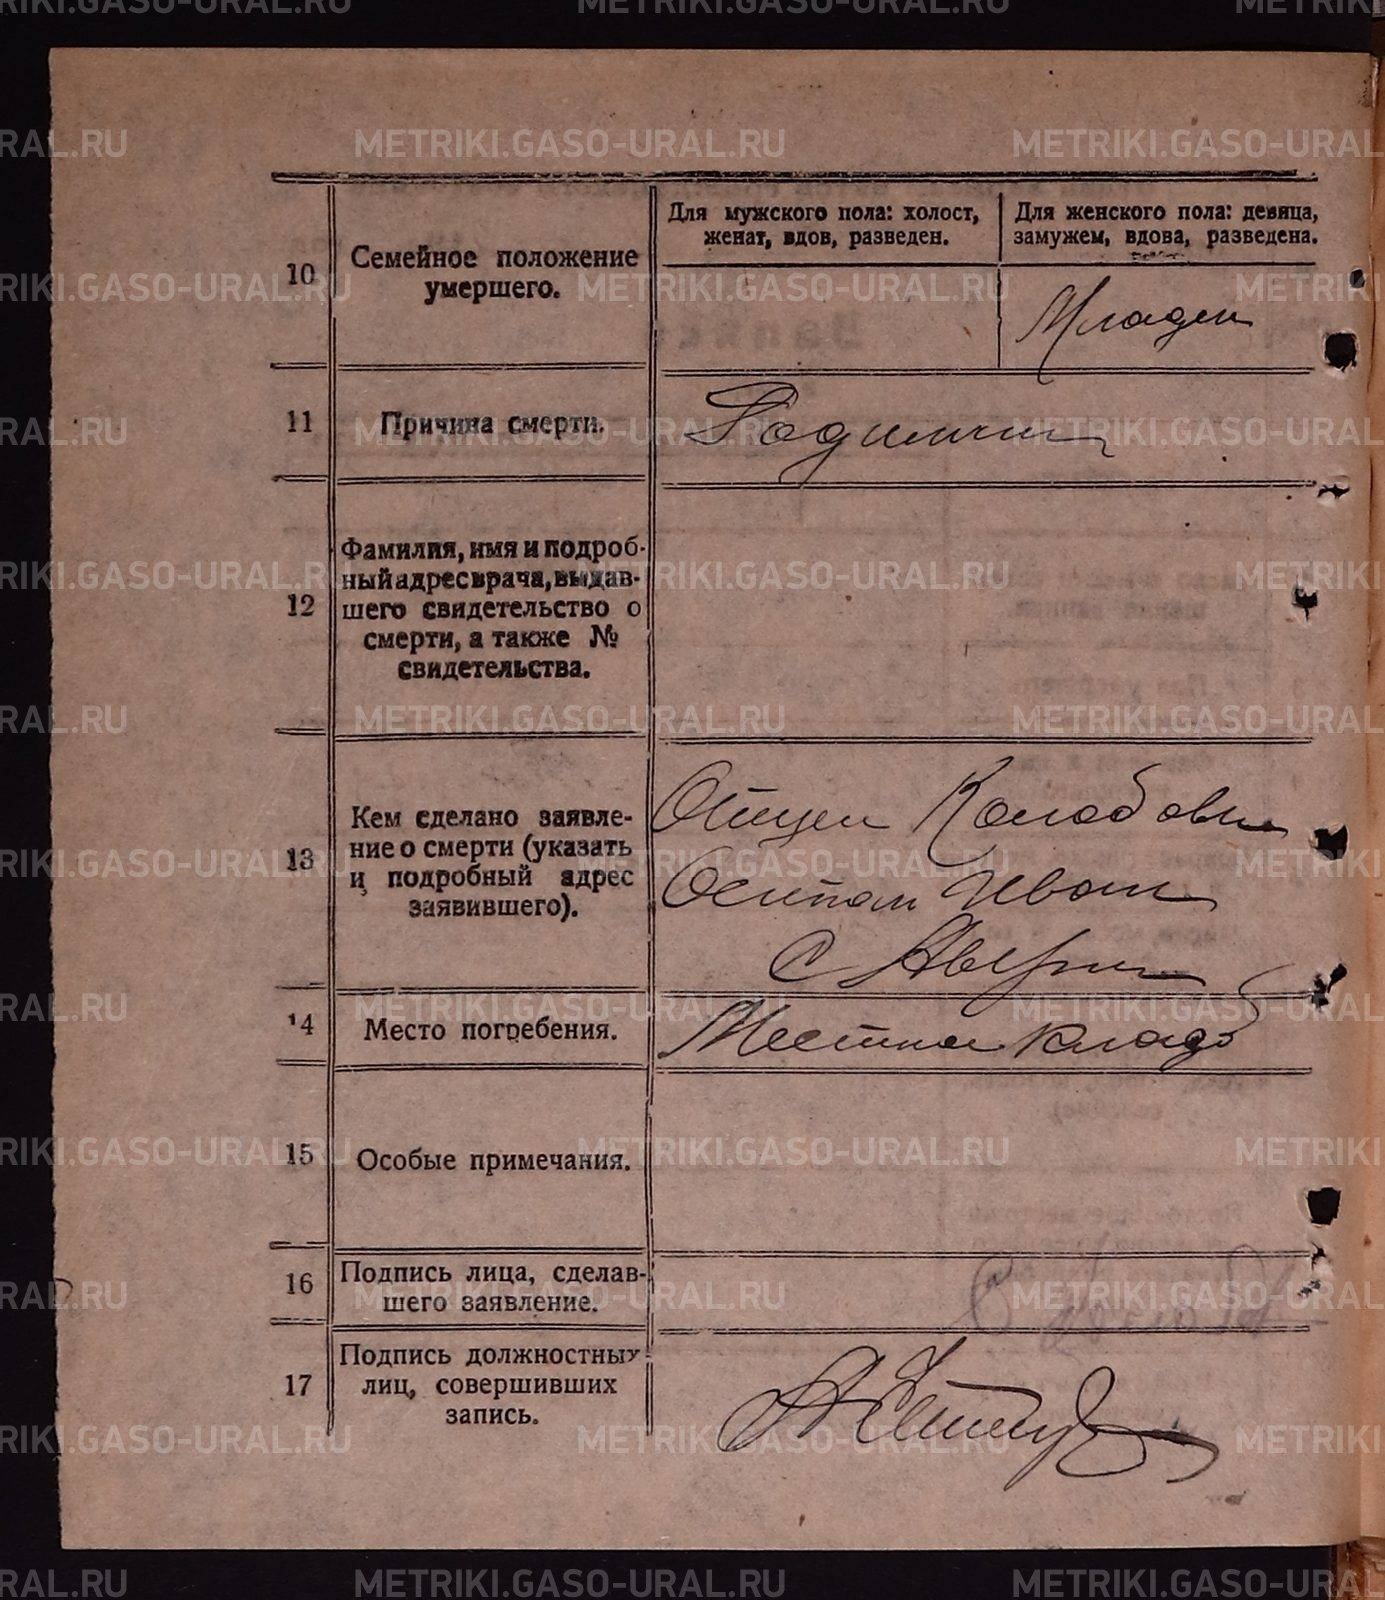 METRIKI.GASO-URAL.RU
Для мужского пола: холост, женат, вдов, разведен.
Для женского пола: девица, замужем, вдова, разведена.
10
Семейное положение
умершего.
Младен
11
Причина смерти.
Родимчик
12
Фамилия, имя и подроб-
ный адрес врача, выдав-
шего свидетельство о
смерти, а также №
свидетельства.
13
Кем сделано заявле-
ние о смерти (указать
и подробный адрес
заявившего).
Отцем
Осипом Иван
с
14
Место погребения.
Местное кладб
15
Особые примечания.
16
Подпись лица, сделав-
шего заявление.
17
Подпись должностных
лиц, совершивших
запись.